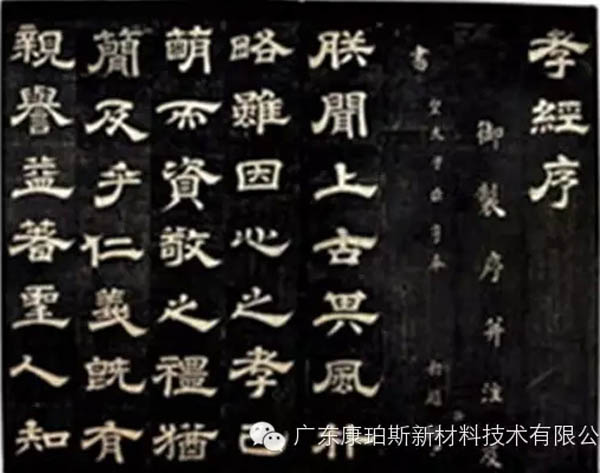 孝經序
御製序并注及
書
皇太子臣亨奉 勅題
朕聞上古其風朴
略雖因心之孝已
萌而資敬之禮猶
簡及乎仁義既有
親譽益著聖人知
广东康珀斯新材料技术有限公